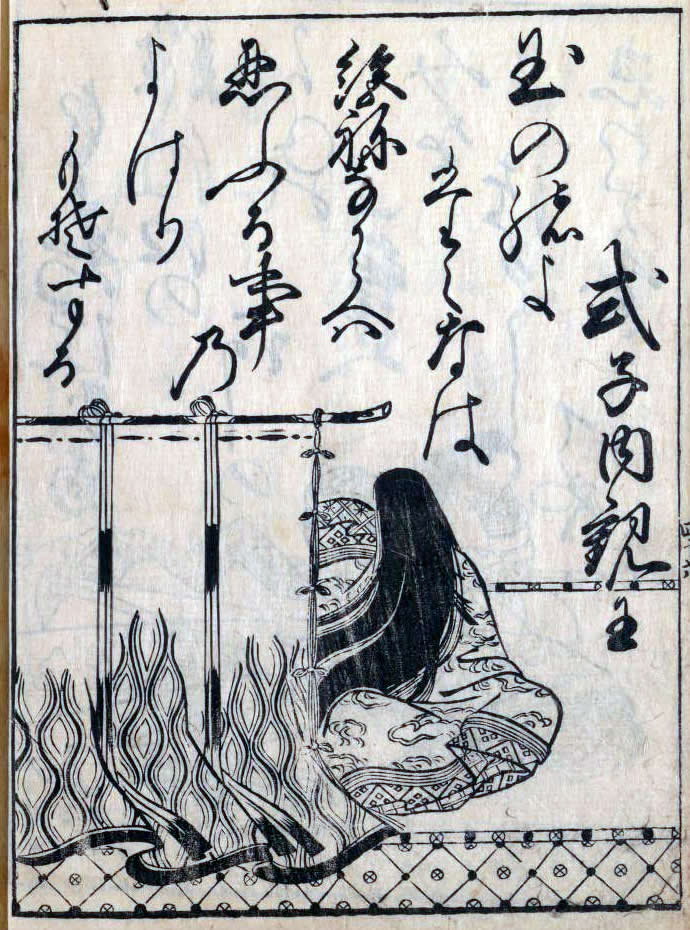 式子内親王
玉の緒よ
たえなは
絶祢なからへハ
忍ふる事乃
よはり
もそする